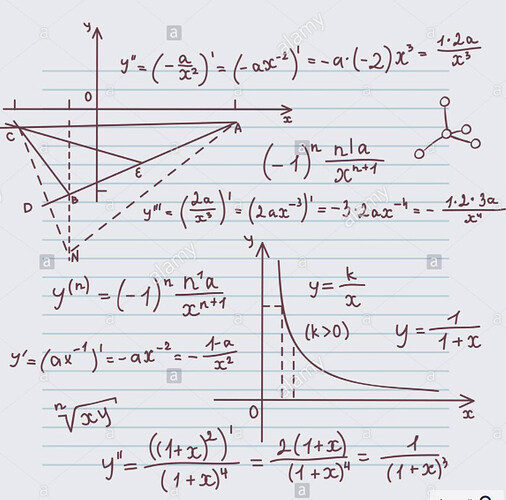 y
y'' = (-a/x²)' = (-ax⁻²)' = -a·(-2)x³ = 1·2a/x³
0
x
C
A
E
(-1)ⁿ n!a/xⁿ⁺¹
D
B
y''' = (2a/x³)' = (2ax⁻³)' = -3·2ax⁻⁴ = - 1·2·3a/x⁴
N
y
y⁽ⁿ⁾ = (-1)ⁿ n'a/xⁿ⁺¹
y = k/x
(k>0)
y = 1/(1+x)
y' = (ax⁻¹)' = -ax⁻² = - 1-a/x²
ⁿ√xy
0
x
y'' = ((1+x)²)'/(1+x)⁴ = 2(1+x)/(1+x)⁴ = 1/(1+x)³
alamy
a